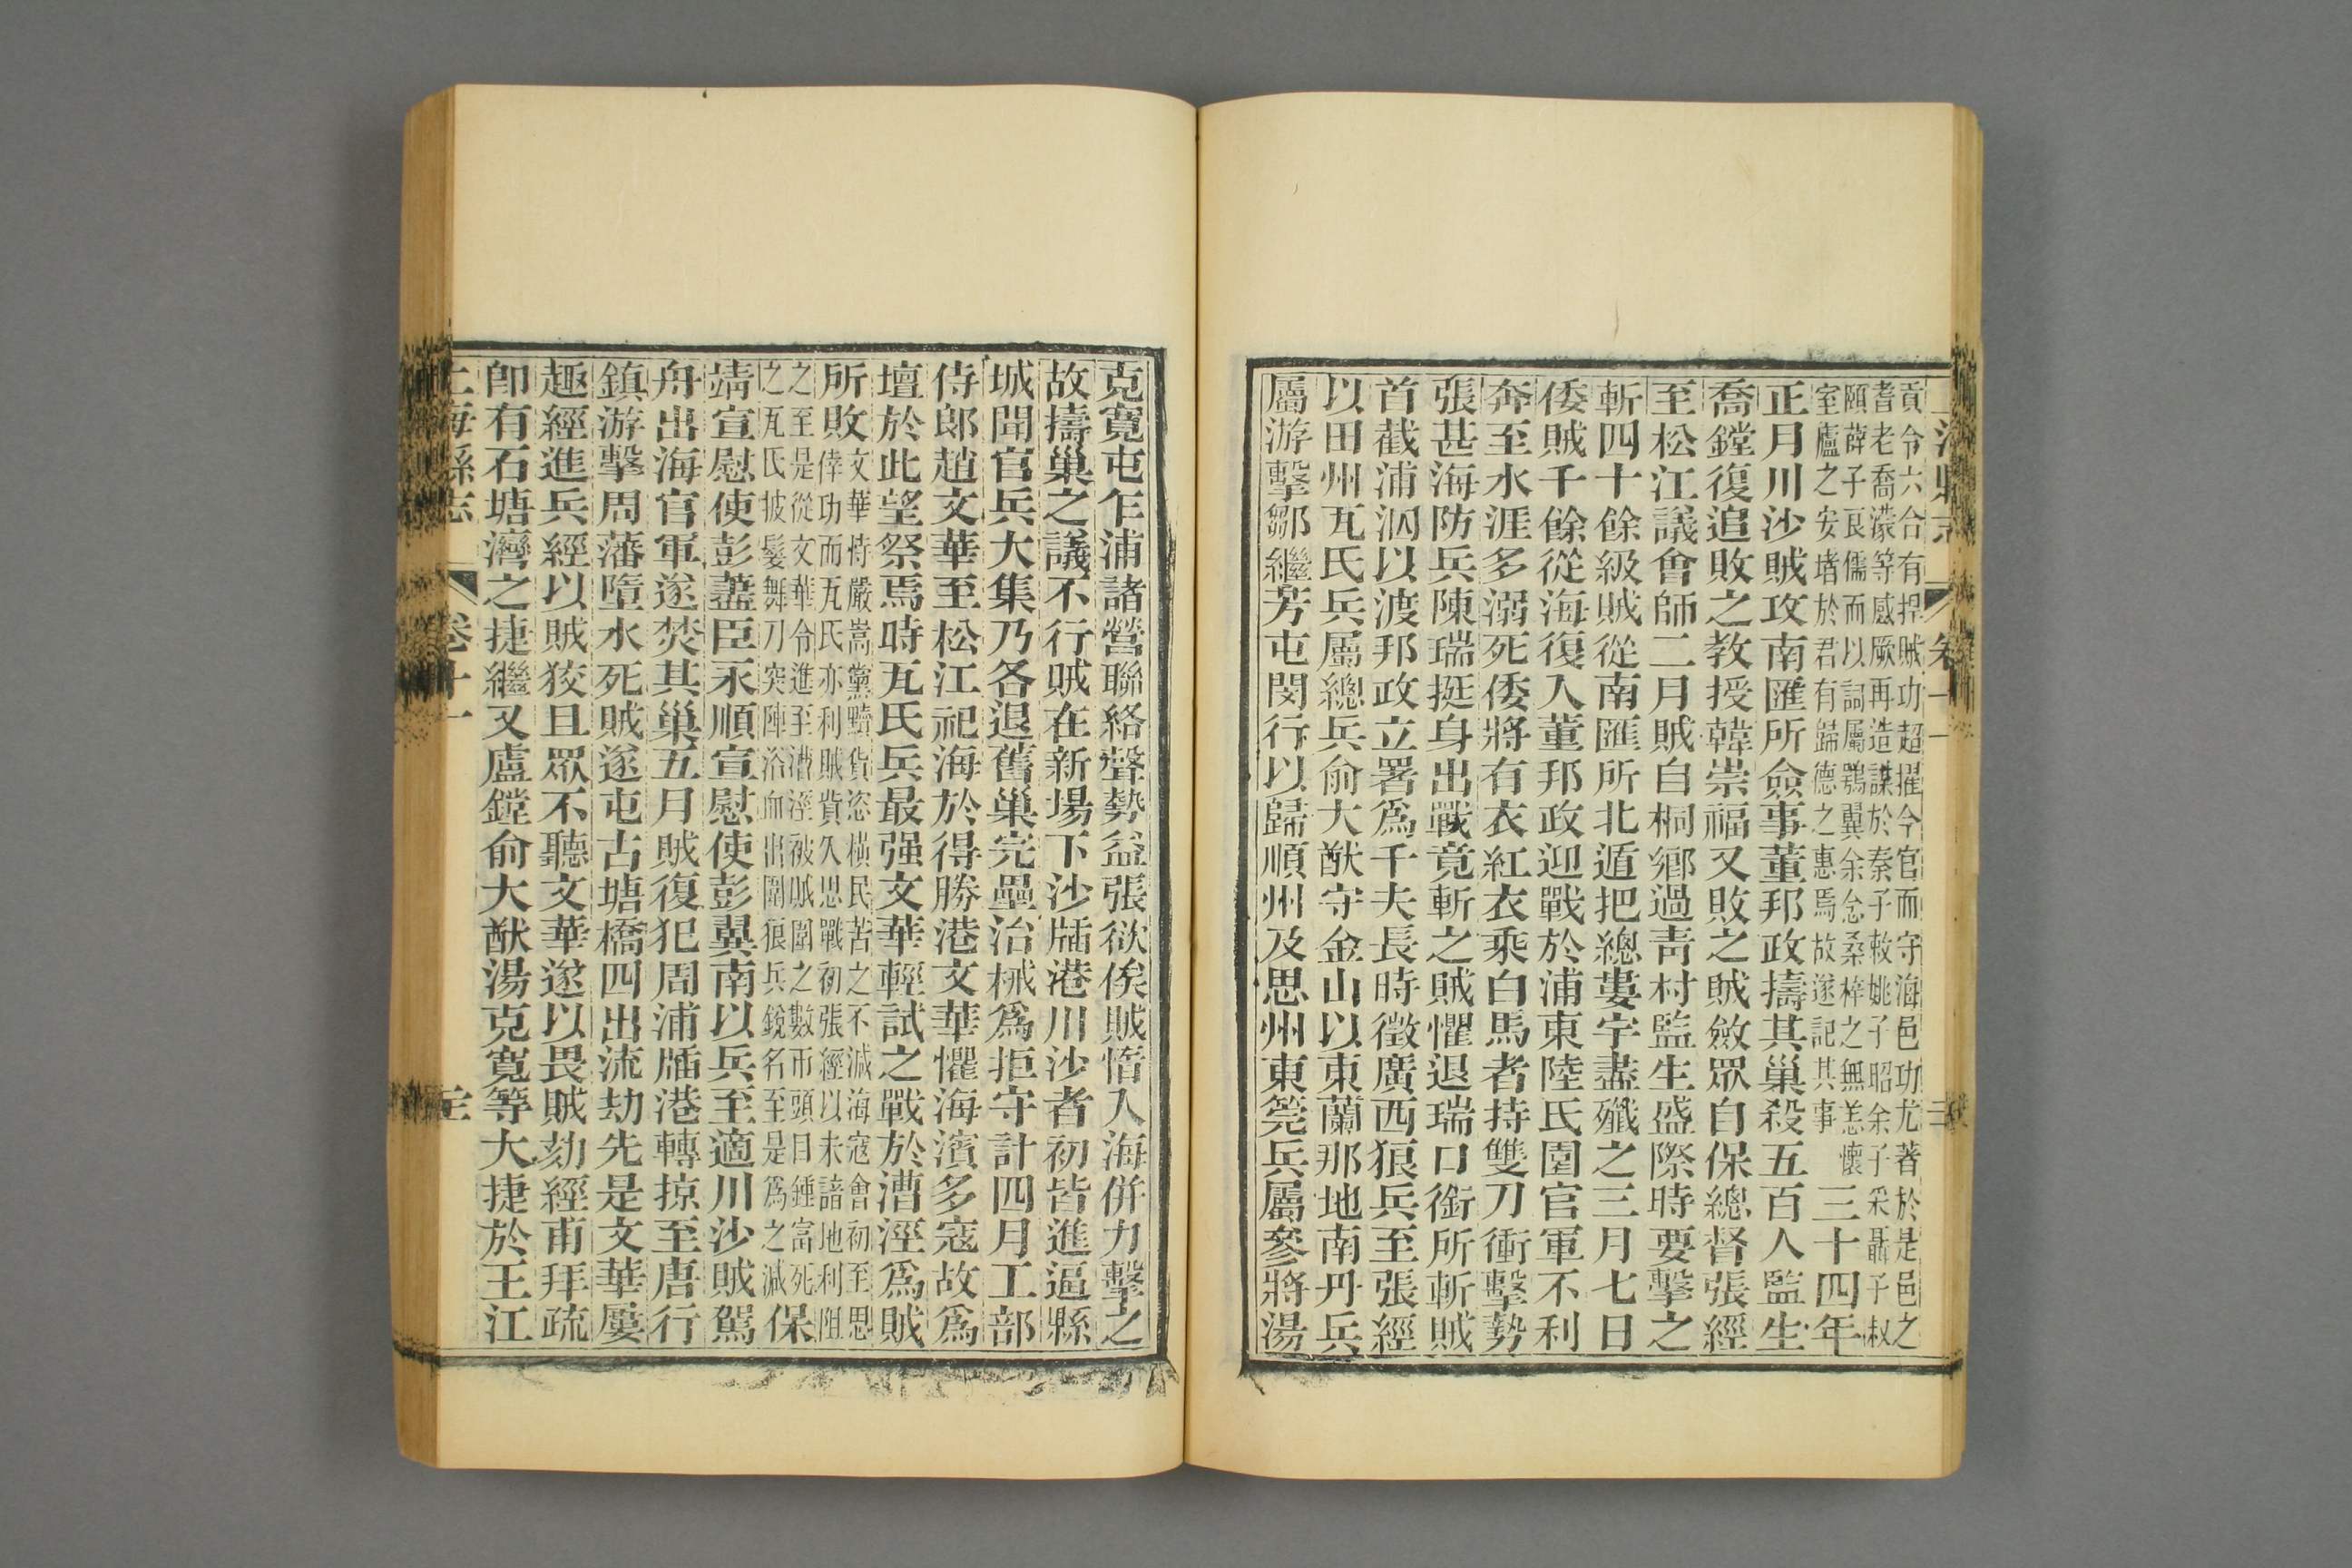 貢令六合有捍賊功超擢今官而守海邑功尤著於是邑之
耆老喬濛等感厥再造謀於秦子敕姚子昭余子采聶子叔
頤薛子艮儒而以詞屬鶚翼余念桑梓之無恙懷
室廬之安堵於君有歸德之惠焉故遂記其事三十四年
正月川沙賊攻南匯所僉事董邦政擣其巢殺五百人監生
喬鏜復追敗之教授韓崇福又敗之賊斂眾自保總督張經
至松江議會師二月賊自桐鄉過青村監生盛際時要擊之
斬四十餘級賊從南匯所北遁把總婁宇盡殲之三月七日
倭賊千餘從海復入董邦政迎戰於浦東陸氏圍官軍不利
奔至水涯多溺死倭將有衣紅衣乘白馬者持雙刀衝擊勢
張甚海防兵陳瑞挺身出戰竟斬之賊懼退瑞口銜所斬賊
首截浦泅以渡邦政立署爲千夫長時徵廣西狼兵至張經
以田州瓦氏兵屬總兵俞大猷守金山以東蘭那地南丹兵
屬游擊鄒繼芳屯閔行以歸順州及思州東筦兵屬參將湯
克寬屯乍浦諸營聯絡聲勢益張欲俟賊惰入海併力擊之
故擣巢之議不行賊在新場下沙牐港川沙者初皆進逼縣
城聞官兵大集乃各退舊巢完壘治械爲拒守計四月工部
侍郎趙文華至松江祀海於得勝港文華懼海濱多寇故爲
壇於此望祭焉時瓦氏兵最强文華輕試之戰於漕涇爲賊
所敗文華恃嚴嵩黨黷貨恣橫民苦之不減海寇會初至思
倖功而瓦氏亦利賊貲久思戰初張經以未諳地利阻
之至是從文華令進至漕涇被賊圍之數帀頭目鍾富死
之瓦氏披髮舞刀突陣浴血出圍狼兵銳名至是爲之減保
靖宣慰使彭藎臣永順宣慰使彭翼南以兵至適川沙賊駕
舟出海官軍遂焚其巢五月賊復犯周浦牐港轉掠至唐行
鎮游擊周藩墮水死賊遂屯古塘橋四出流劫先是文華屢
趣經進兵經以賊狡且眾不聽文華遂以畏賊劾經甫拜疏
卽有石塘灣之捷繼又盧鏜俞大猷湯克寬等大捷於王江
上海縣志 卷十一